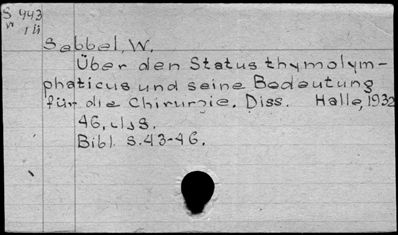 S 443
Sebbel, W.
Über den Status thymolym-
phaticus und seine Bedeutung
für die Chirurgie. Diss. Halle, 1932
46, S.
Bibl. S. 43-46.